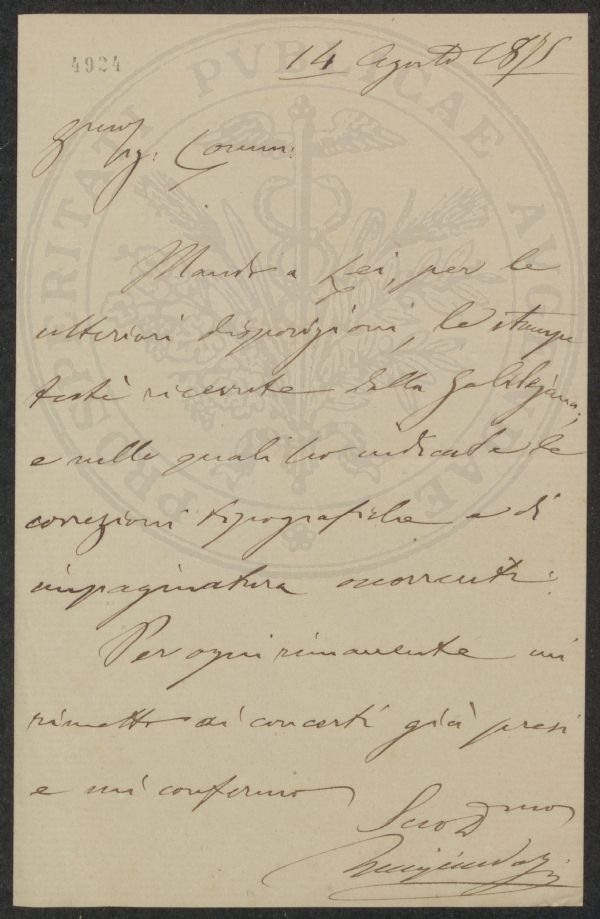 4924
14 Agosto 1875
Sig: Comm:
Mando a Lei, per le
ulteriori disposizioni, le stampe
testè ricevute dalla
e nelle quali ho indicate le
correzioni tipografiche e di
impaginatura occorrenti.
Per ogni rimanente mi
rimetto ai concerti già presi
e mi confermo
Suo Dmo
PROSPERITATI PVBLICAE AVGENDAE